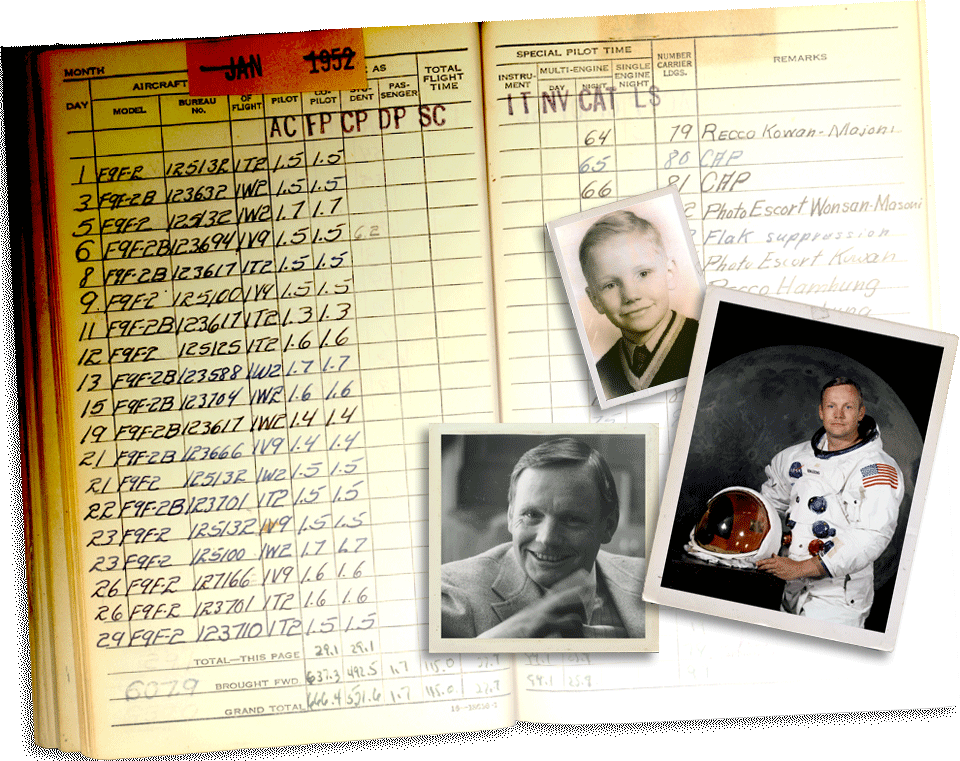 MONTH JAN 1952 AS TOTAL FLIGHT TIME
DAY AIRCRAFT OF FLIGHT PILOT CO-PILOT STUDENT PASSENGER
MODEL BUREAU NO.
AC FP CP DP SC
1 F9F-2 125132 1T2 1.5 1.5
3 F9F-2B 123632 1W2 1.5 1.5
5 F9F-2 125132 1W2 1.7 1.7
6 F9F-2B 123694 1V9 1.5 1.5 6.2
8 F9F-2B 123617 1T2 1.5 1.5
9 F9F-2 125100 1V9 1.5 1.5
11 F9F-2B 123617 1T2 1.3 1.3
12 F9F2 125125 1T2 1.6 1.6
13 F9F-2B 123588 1W2 1.7 1.7
15 F9F-2B 123704 1W2 1.6 1.6
19 F9F-2B 123617 1W2 1.4 1.4
21 F9F-2B 123666 1V9 1.4 1.4
21 F9F2 125132 1W2 1.5 1.5
22 F9F-2B 123701 1T2 1.5 1.5
23 F9F-2 125132 1V9 1.5 1.5
23 F9F-2 125100 1W2 1.7 1.7
26 F9F-2 127166 1V9 1.6 1.6
26 F9F-2 123701 1T2 1.6 1.6
29 F9F-2 123710 1T2 1.5 1.5
TOTAL—THIS PAGE 29.1 29.1
6079 BROUGHT FWD. 637.3 492.5 1.7 115.0
GRAND TOTAL 666.4 521.6 1.7 115.0
SPECIAL PILOT TIME NUMBER CARRIER LDGS. REMARKS
INSTRUMENT MULTI-ENGINE SINGLE ENGINE NIGHT
DAY NIGHT
IT NV CAT LS
64 79 Recco Kowan-Majoni
65 80 CAP
66 81 CAP
Photo Escort Wonsan-Masoni
Flak suppression
Photo Escort Kowan
Recco Hambung